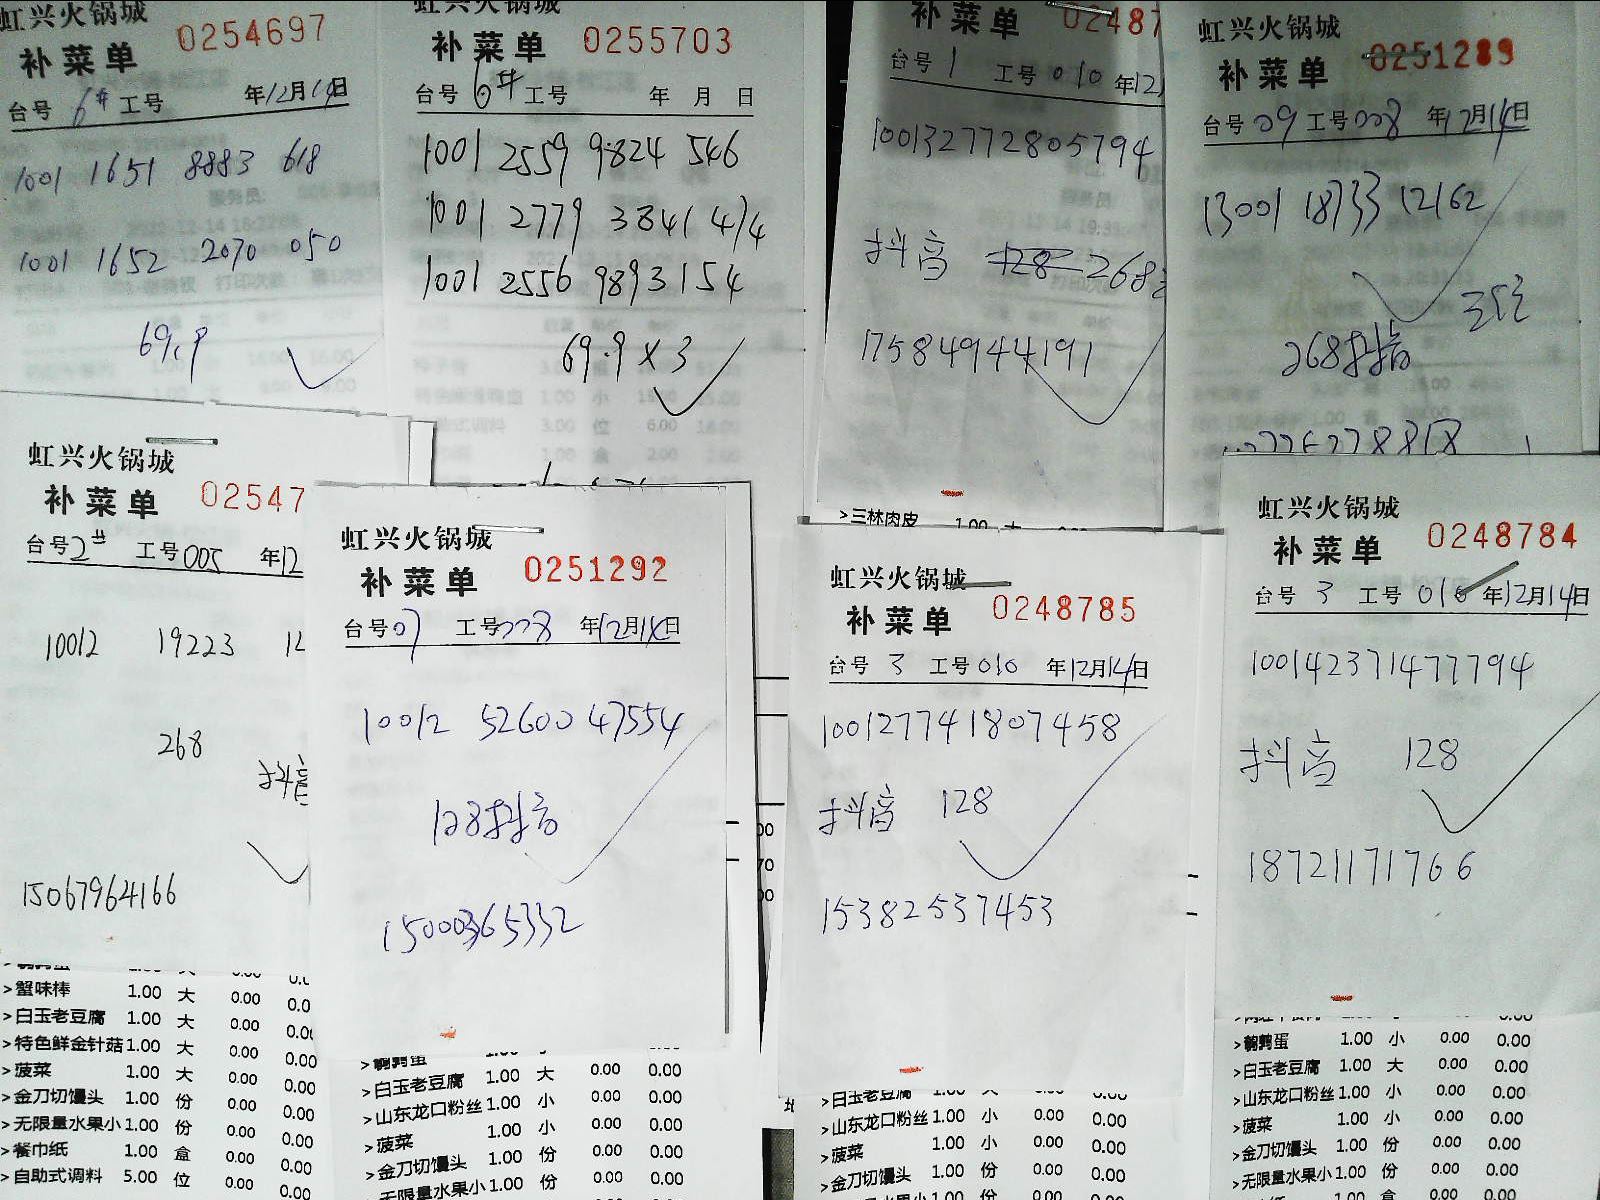 虹兴火锅城
补菜单 0254697
台号 6# 工号 年12月14日
1001 1651 8883 618
1001 1652 2070 050
69.9
虹兴火锅城
补菜单 0255703
台号 6# 工号 年 月 日
1001 2559 9824 546
1001 2779 3841 474
1001 2556 9893 154
69.9 x 3
补菜单 02487
台号 1 工号 010 年12
100132772805794
抖音 128 268
17584944191
>三林肉皮 1.00 大
虹兴火锅城
补菜单 0251289
台号 09 工号 008 年12月14日
13001 18733 12162
268抖音
虹兴火锅城
补菜单 02547
台号 2# 工号 005 年12
10012 19223 12
268
抖音
15067964166
>蟹味棒 1.00 大 0.00 0.0
>白玉老豆腐 1.00 大 0.00 0.0
>特色鲜金针菇 1.00 大 0.00 0.00
>菠菜 1.00 大 0.00 0.00
>金刀切馒头 1.00 份 0.00 0.00
>无限量水果小 1.00 份 0.00 0.00
>餐巾纸 1.00 盒 0.00 0.00
>自助式调料 5.00 位 0.00 0.00
虹兴火锅城
补菜单 0251292
台号 07 工号 008 年12月14日
10012 52600 47554
128抖音
15000365332
>鹌鹑蛋
>白玉老豆腐 1.00 大 0.00 0.00
>山东龙口粉丝 1.00 小 0.00 0.00
>菠菜 1.00 小 0.00 0.00
>金刀切馒头 1.00 份 0.00 0.00
>无限量水果小 1.00 份 0.00 0.00
虹兴火锅城
补菜单 0248785
台号 3 工号 010 年12月14日
100127741807458
抖音 128
15382537453
>白玉老豆腐 1.00 大 0.00 0.00
>山东龙口粉丝 1.00 小 0.00 0.00
>菠菜 1.00 小 0.00 0.00
>金刀切馒头 1.00 份 0.00 0.00
>无限量水果小 1.00 份 0.00 0.00
虹兴火锅城
补菜单 0248784
台号 3 工号 010 年12月14日
100142371477794
抖音 128
18721171766
>鹌鹑蛋 1.00 小 0.00 0.00
>白玉老豆腐 1.00 大 0.00 0.00
>山东龙口粉丝 1.00 小 0.00 0.00
>菠菜 1.00 小 0.00 0.00
>金刀切馒头 1.00 份 0.00 0.00
>无限量水果小 1.00 份 0.00 0.00